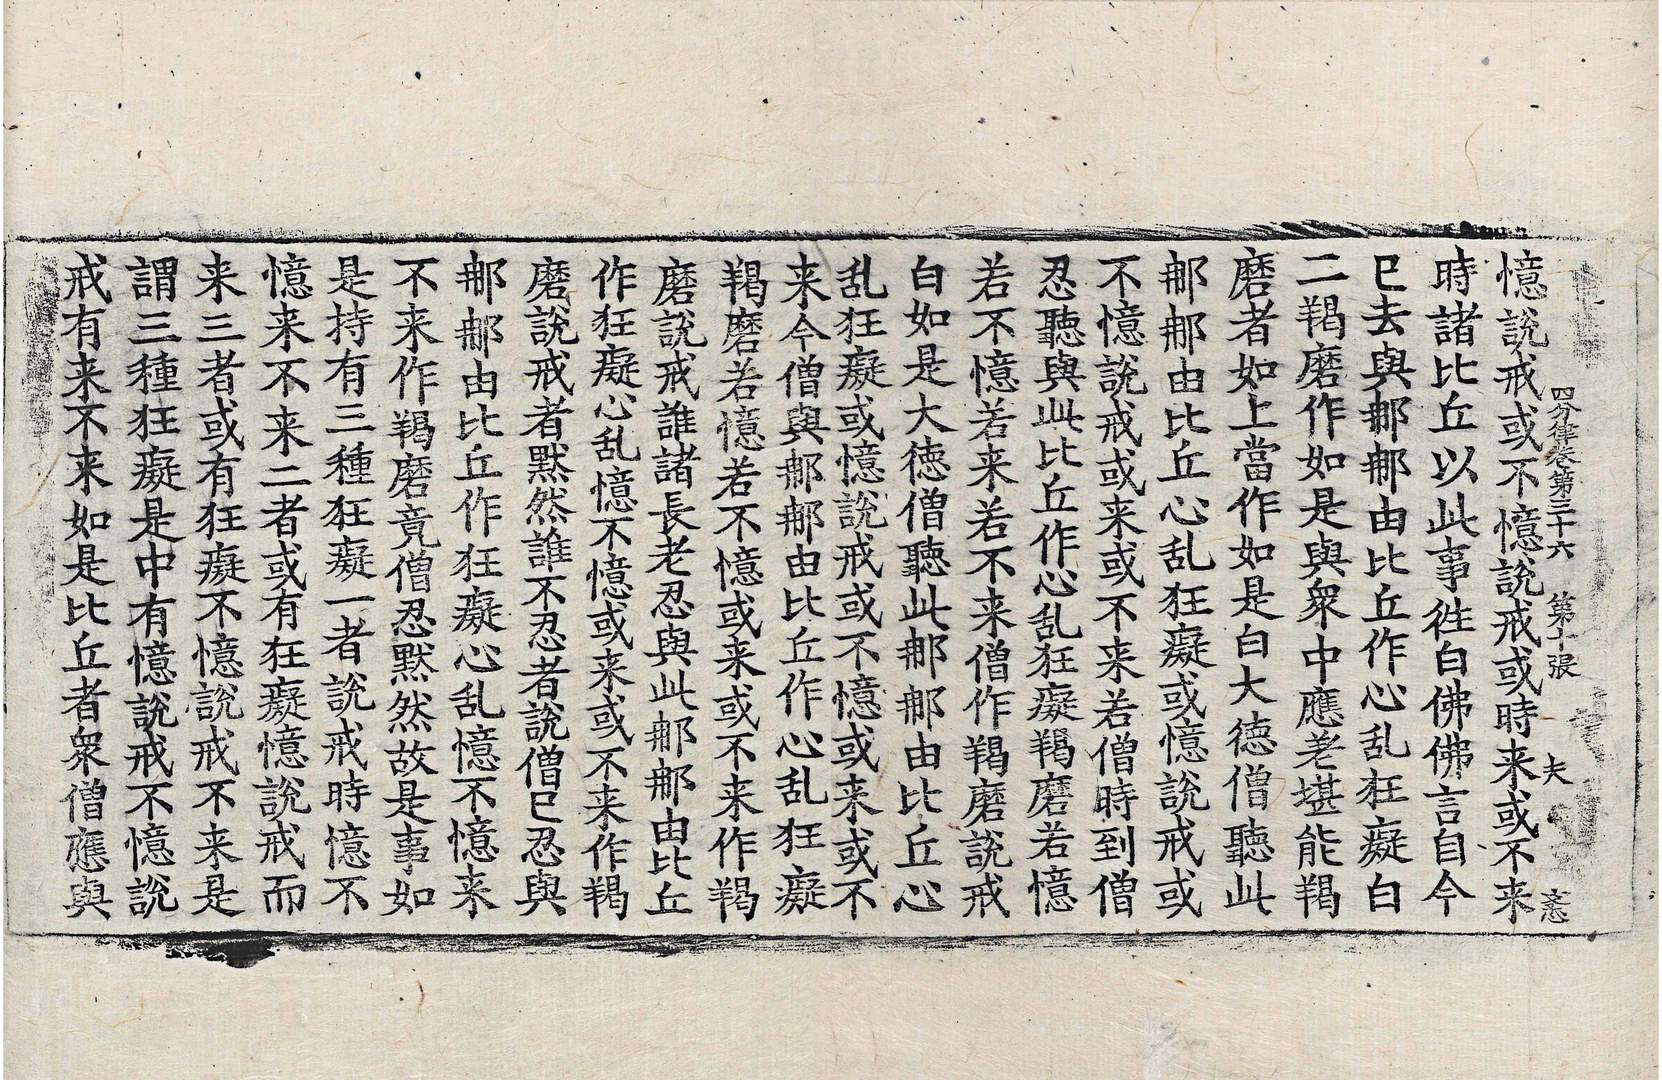 四分律卷第三十六 第十張 夫
憶說戒或不憶說戒或時来或不来
時諸比丘以此事徃白佛佛言自今
已去與𨚗𨚗由比丘作心乱狂癡白
二羯磨作如是與衆中應差堪能羯
磨者如上當作如是白大徳僧聽此
𨚗𨚗由比丘心乱狂癡或憶說戒或
不憶說戒或来或不来若僧時到僧
忍聽與此比丘作心乱狂癡羯磨若憶
若不憶若来若不来僧作羯磨說戒
白如是大徳僧聽此𨚗𨚗由比丘心
乱狂癡或憶說戒或不憶或来或不
来今僧與𨚗𨚗由比丘作心乱狂癡
羯磨若憶若不憶或来或不来作羯
磨說戒誰諸長老忍與此𨚗𨚗由比丘
作狂癡心乱憶不憶或来或不来作羯
磨說戒者默然誰不忍者說僧已忍與
𨚗𨚗由比丘作狂癡心乱憶不憶来
不来作羯磨竟僧忍默然故是事如
是持有三種狂癡一者說戒時憶不
憶来不来二者或有狂癡憶說戒而
来三者或有狂癡不憶說戒不来是
謂三種狂癡是中有憶說戒不憶說
戒有来不来如是比丘者衆僧應與